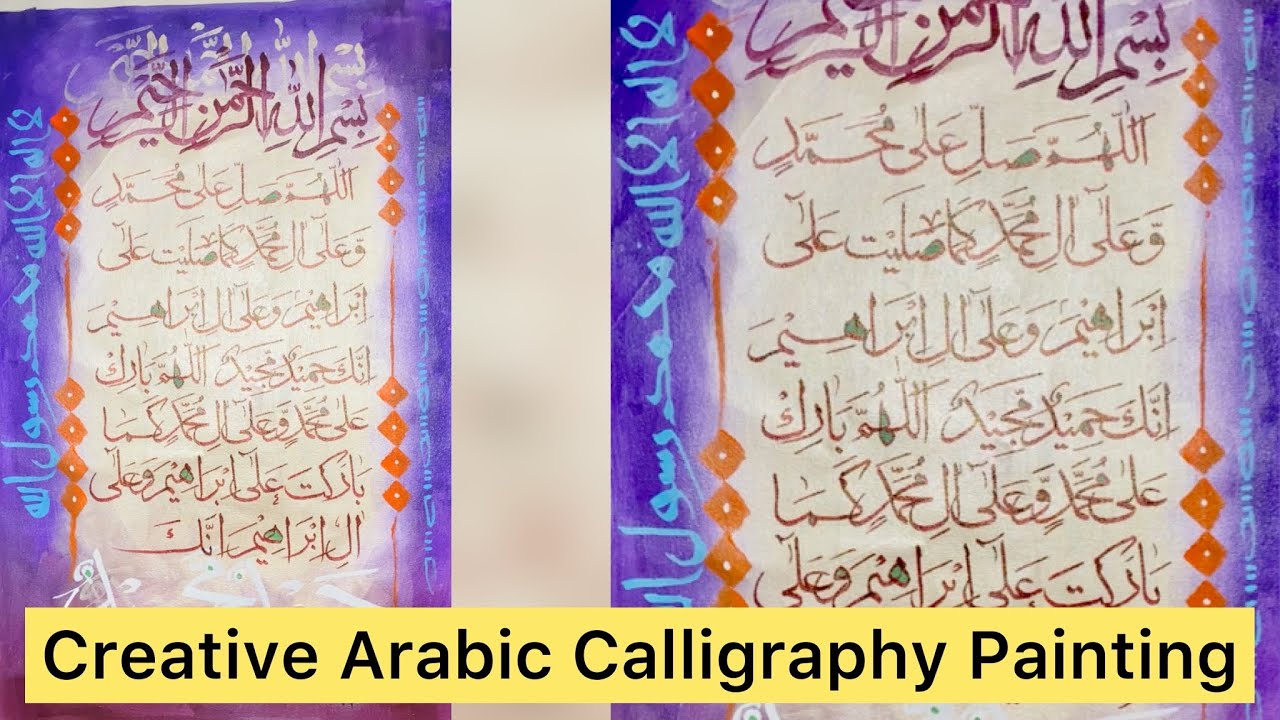 بِسْمِ اللهِ الرَّحْمٰنِ الرَّحِيْمِ
بِسْمِ اللهِ الرَّحْمٰنِ الرَّحِيْمِ
اَللّٰهُمَّ صَلِّ عَلٰى مُحَمَّدٍ
وَّعَلٰٓى اٰلِ مُحَمَّدٍ كَمَا صَلَّيْتَ عَلٰٓى
اِبْرَاهِيْمَ وَعَلٰٓى اٰلِ اِبْرَاهِيْمَ
اِنَّكَ حَمِيْدٌ مَّجِيْدٌ اَللّٰهُمَّ بَارِكْ
عَلٰى مُحَمَّدٍ وَّعَلٰٓى اٰلِ مُحَمَّدٍ كَمَا
بَارَكْتَ عَلٰٓى اِبْرَاهِيْمَ وَعَلٰٓى
اٰلِ اِبْرَاهِيْمَ اِنَّكَ
لا اله الا الله محمد رسول الله
بِسْمِ اللهِ الرَّحْمٰنِ الرَّحِيْمِ
اَللّٰهُمَّ صَلِّ عَلٰى مُحَمَّدٍ
وَّعَلٰٓى اٰلِ مُحَمَّدٍ كَمَا صَلَّيْتَ عَلٰٓى
اِبْرَاهِيْمَ وَعَلٰٓى اٰلِ اِبْرَاهِيْمَ
اِنَّكَ حَمِيْدٌ مَّجِيْدٌ اَللّٰهُمَّ بَارِكْ
عَلٰى مُحَمَّدٍ وَّعَلٰٓى اٰلِ مُحَمَّدٍ كَمَا
بَارَكْتَ عَلٰٓى اِبْرَاهِيْمَ وَعَلٰٓى
لا اله الا الله محمد رسول
Creative Arabic Calligraphy Painting